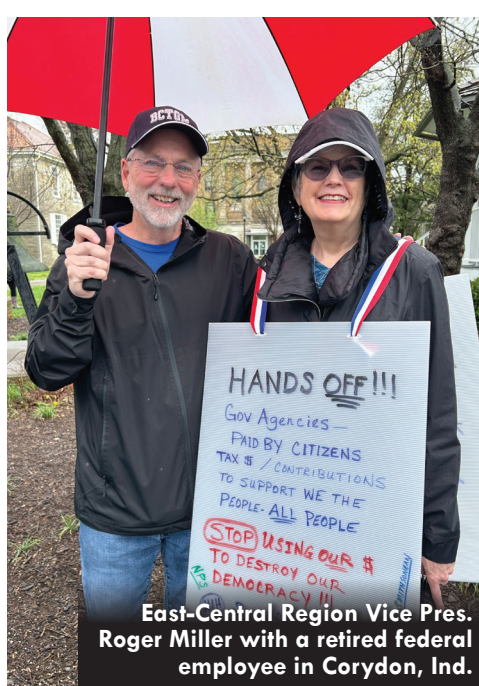 BCTGM
HANDS OFF!!!
Gov Agencies—
PAID BY CITIZENS
TAX $ / CONTRIBUTIONS
TO SUPPORT WE THE
PEOPLE - ALL PEOPLE
STOP USING OUR $
TO DESTROY OUR
DEMOCRACY !!!
NPS
East-Central Region Vice Pres.
Roger Miller with a retired federal
employee in Corydon, Ind.